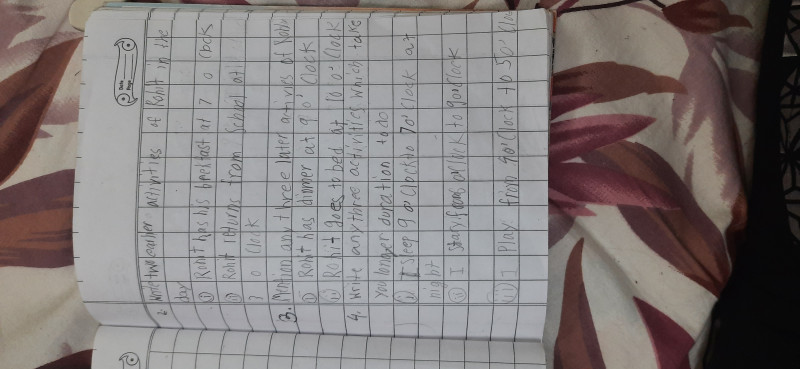 Date
Page
2. Write two earlier activities of Rohit in the
day
(i) Rohit has his breakfast at 7 o clock
(ii) Rohit returns from School at
3 o Clock
3. Mention any three later activies of Rohit
(i) Rohit has dinner at 9 o' Clock
(ii) Rohit goes to bed at 10 o' Clock
4. Write any three activities which take
you longer duration to do
(i) I sleep 9 o' Clock to 7 o' Clock at
night
(ii) I study from o' clock to 9 o' Clock
(iii) I Play from 4 o' Clock to 5 o' Clo